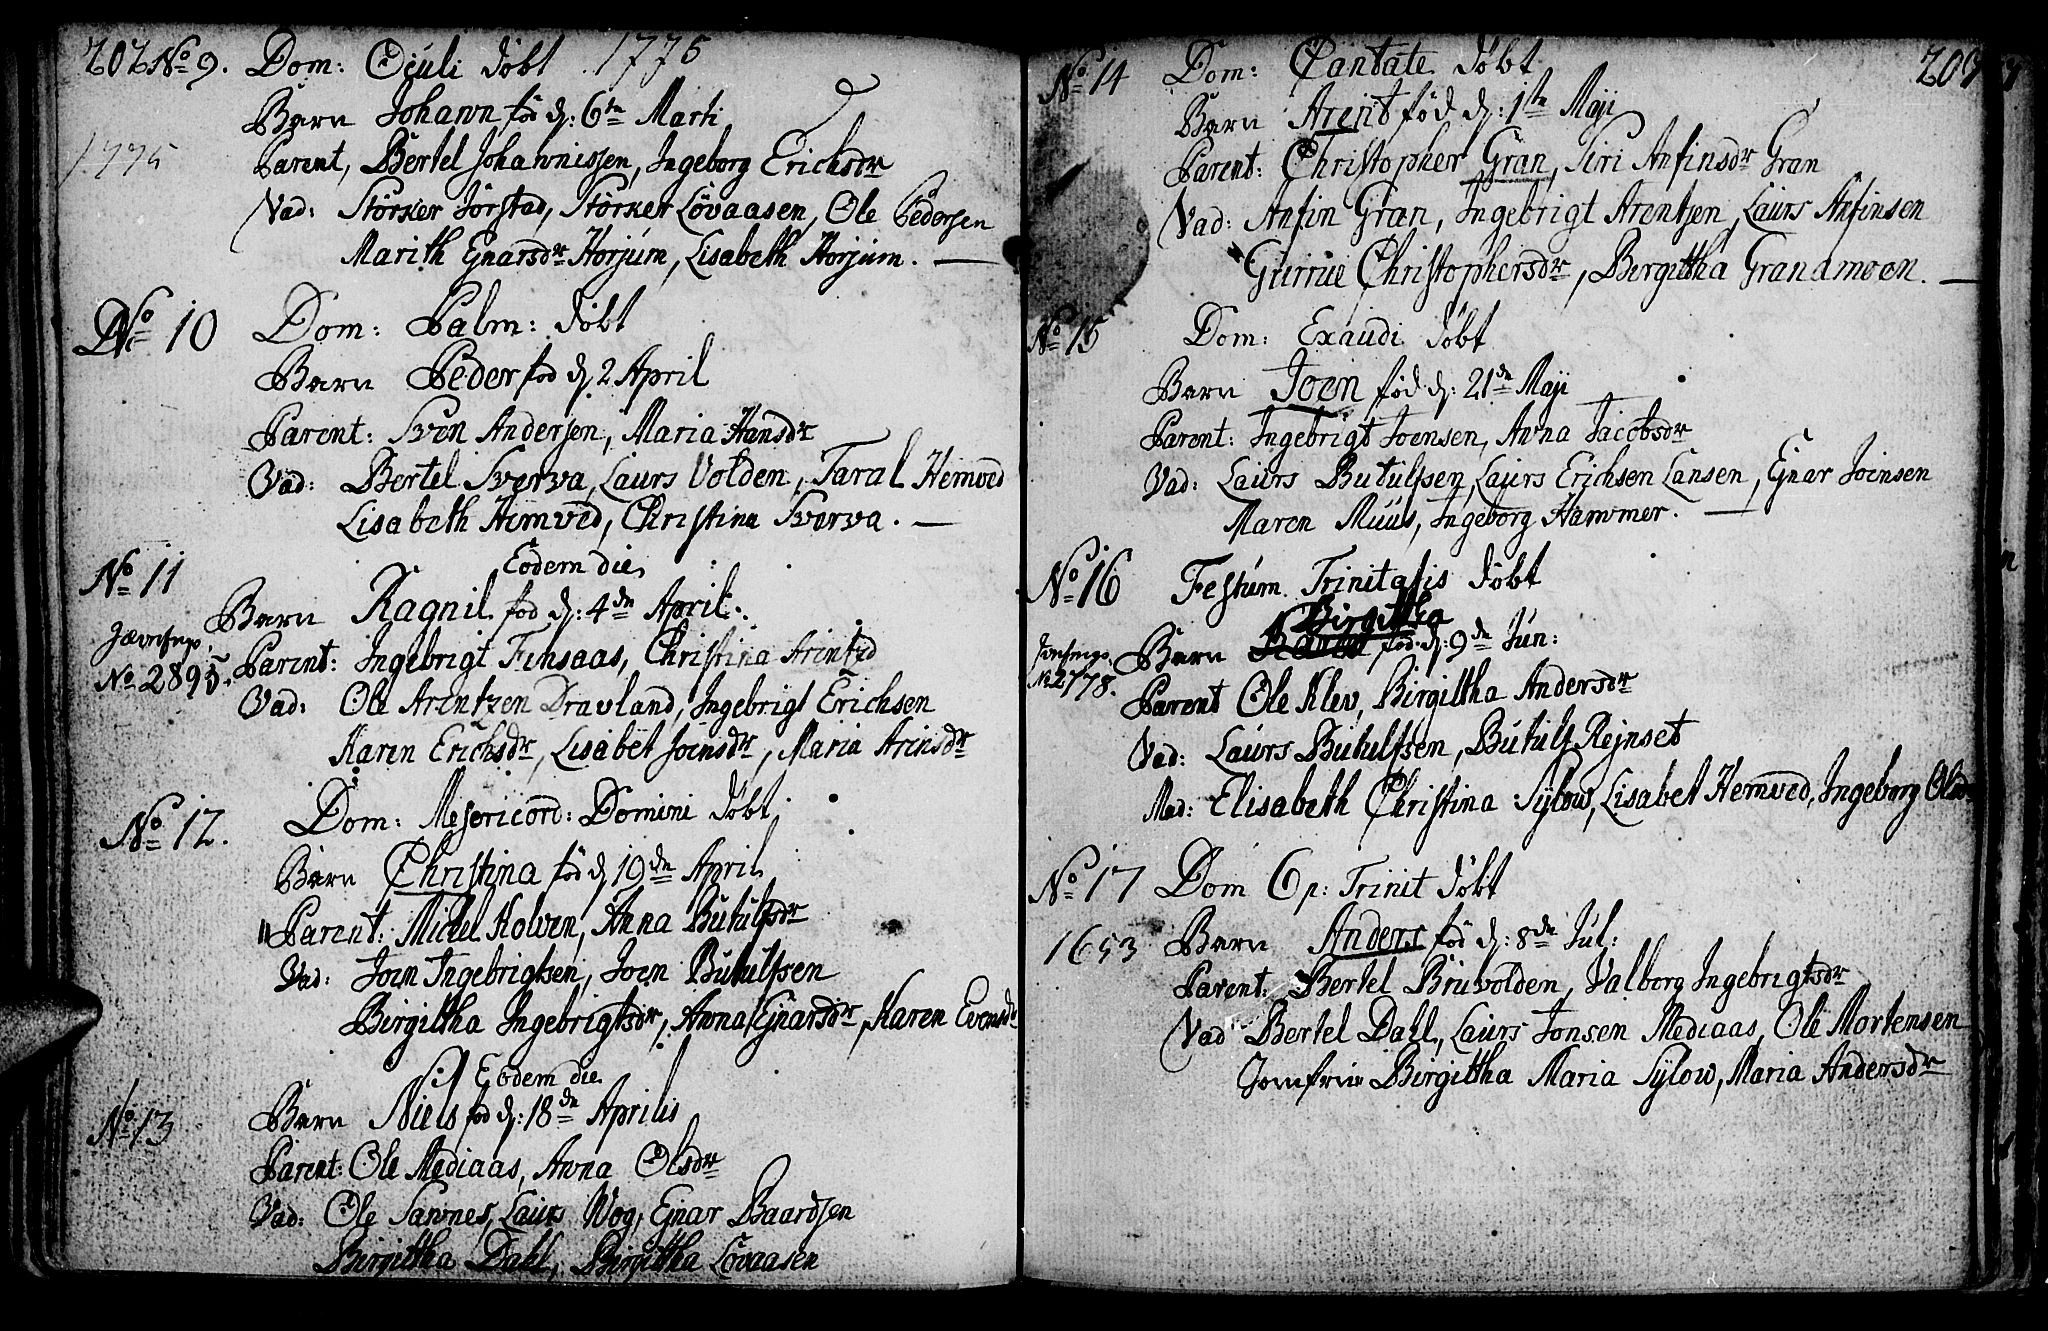 202 No 9. Dom: Oculi döbt 1775
Barn Johann föd d: 6te Marti
1775
Parent, Bertel Johannissen, Ingeborg Erichsdr
Vad: Störker Jörstad, Störker Lövaasen, Ole Pedersen
Marith Ejnarsdr Horjum, Lisabeth Horjum.
No 10 Dom: Palm: döbt
Barn Peder föd d. 2 April
Parent: Sven Andersen, Maria Hansdr
Vad: Bertel Sverva, Laurs Volden, Taral Hemved
Lisabeth Hemved, Christina Sverva.
No 11 Eodem die
Barn Ragnil föd d: 4de April.
Parent: Ingebrigt Finsaas, Christina Arintzd
No 2895.
Vad: Ole Arentzen Dravland, Ingebrigt Erichsen
Karen Erichsdr, Lisabet Joensdr, Maria Arensdr
No 12. Dom: Mesericord: Domini döbt
Barn Christina föd d. 19de April
Parent: Michel Kolven, Anna Butulfsdr
Vad: Joen Ingebrigtsen, Joen Butulfsen
Birgittha Ingebrigtsdr, Anna Ejnarsdr, Karen Evensdr
Eodem die
No 13 Barn Niels föd d: 18de Aprilis
Parent: Ole Mediaas, Anna Olsdr
Vad: Ole Sannes, Laurs Wog, Ejnar Baardsen
Birgittha Dahl, Birgittha Lövaasen
No 14 Dom: Cantate döbt 209
Barn Arent föd d: 1te Maji
Parent: Christopher Gran, Siri Anfinsdr Gran
Vad: Anfin Gran, Ingebrigt Arentzen, Laurs Anfinsen
Gurrue Christophersdr, Birgittha Granamoen.
No 15 Dom: Exaudi döbt
Barn Joen föd d: 21de Maji
Parent: Ingebrigt Joensen, Anna Jacobsdr
Vad: Laurs Butulfsen, Laurs Erichsen Lansen, Ejnar Joensen
Maren Muus, Ingeborg Hammer.
No 16 Festum Trinitatis döbt
Birgittha
Barn föd d: 9de Jun:
No 2778.
Parent Ole Klev, Birgittha Andersdr
Vad: Laurs Butulfsen, Butulf Rejnset
Mad: Elisabeth Christina Sylow, Lisabet Hemved, Ingeborg Olsdr
No 17 Dom 6 p: Trinit döbt
1653 Barn Anders föd d: 8de Jul:
Parent: Bertel Bruvolden, Valborg Ingebrigtsdr
Vad Bertel Dahl, Laurs Jonsen Mediaas, Ole Mortensen
Jomfrue Birgittha Maria Sylow, Maria Andersdr